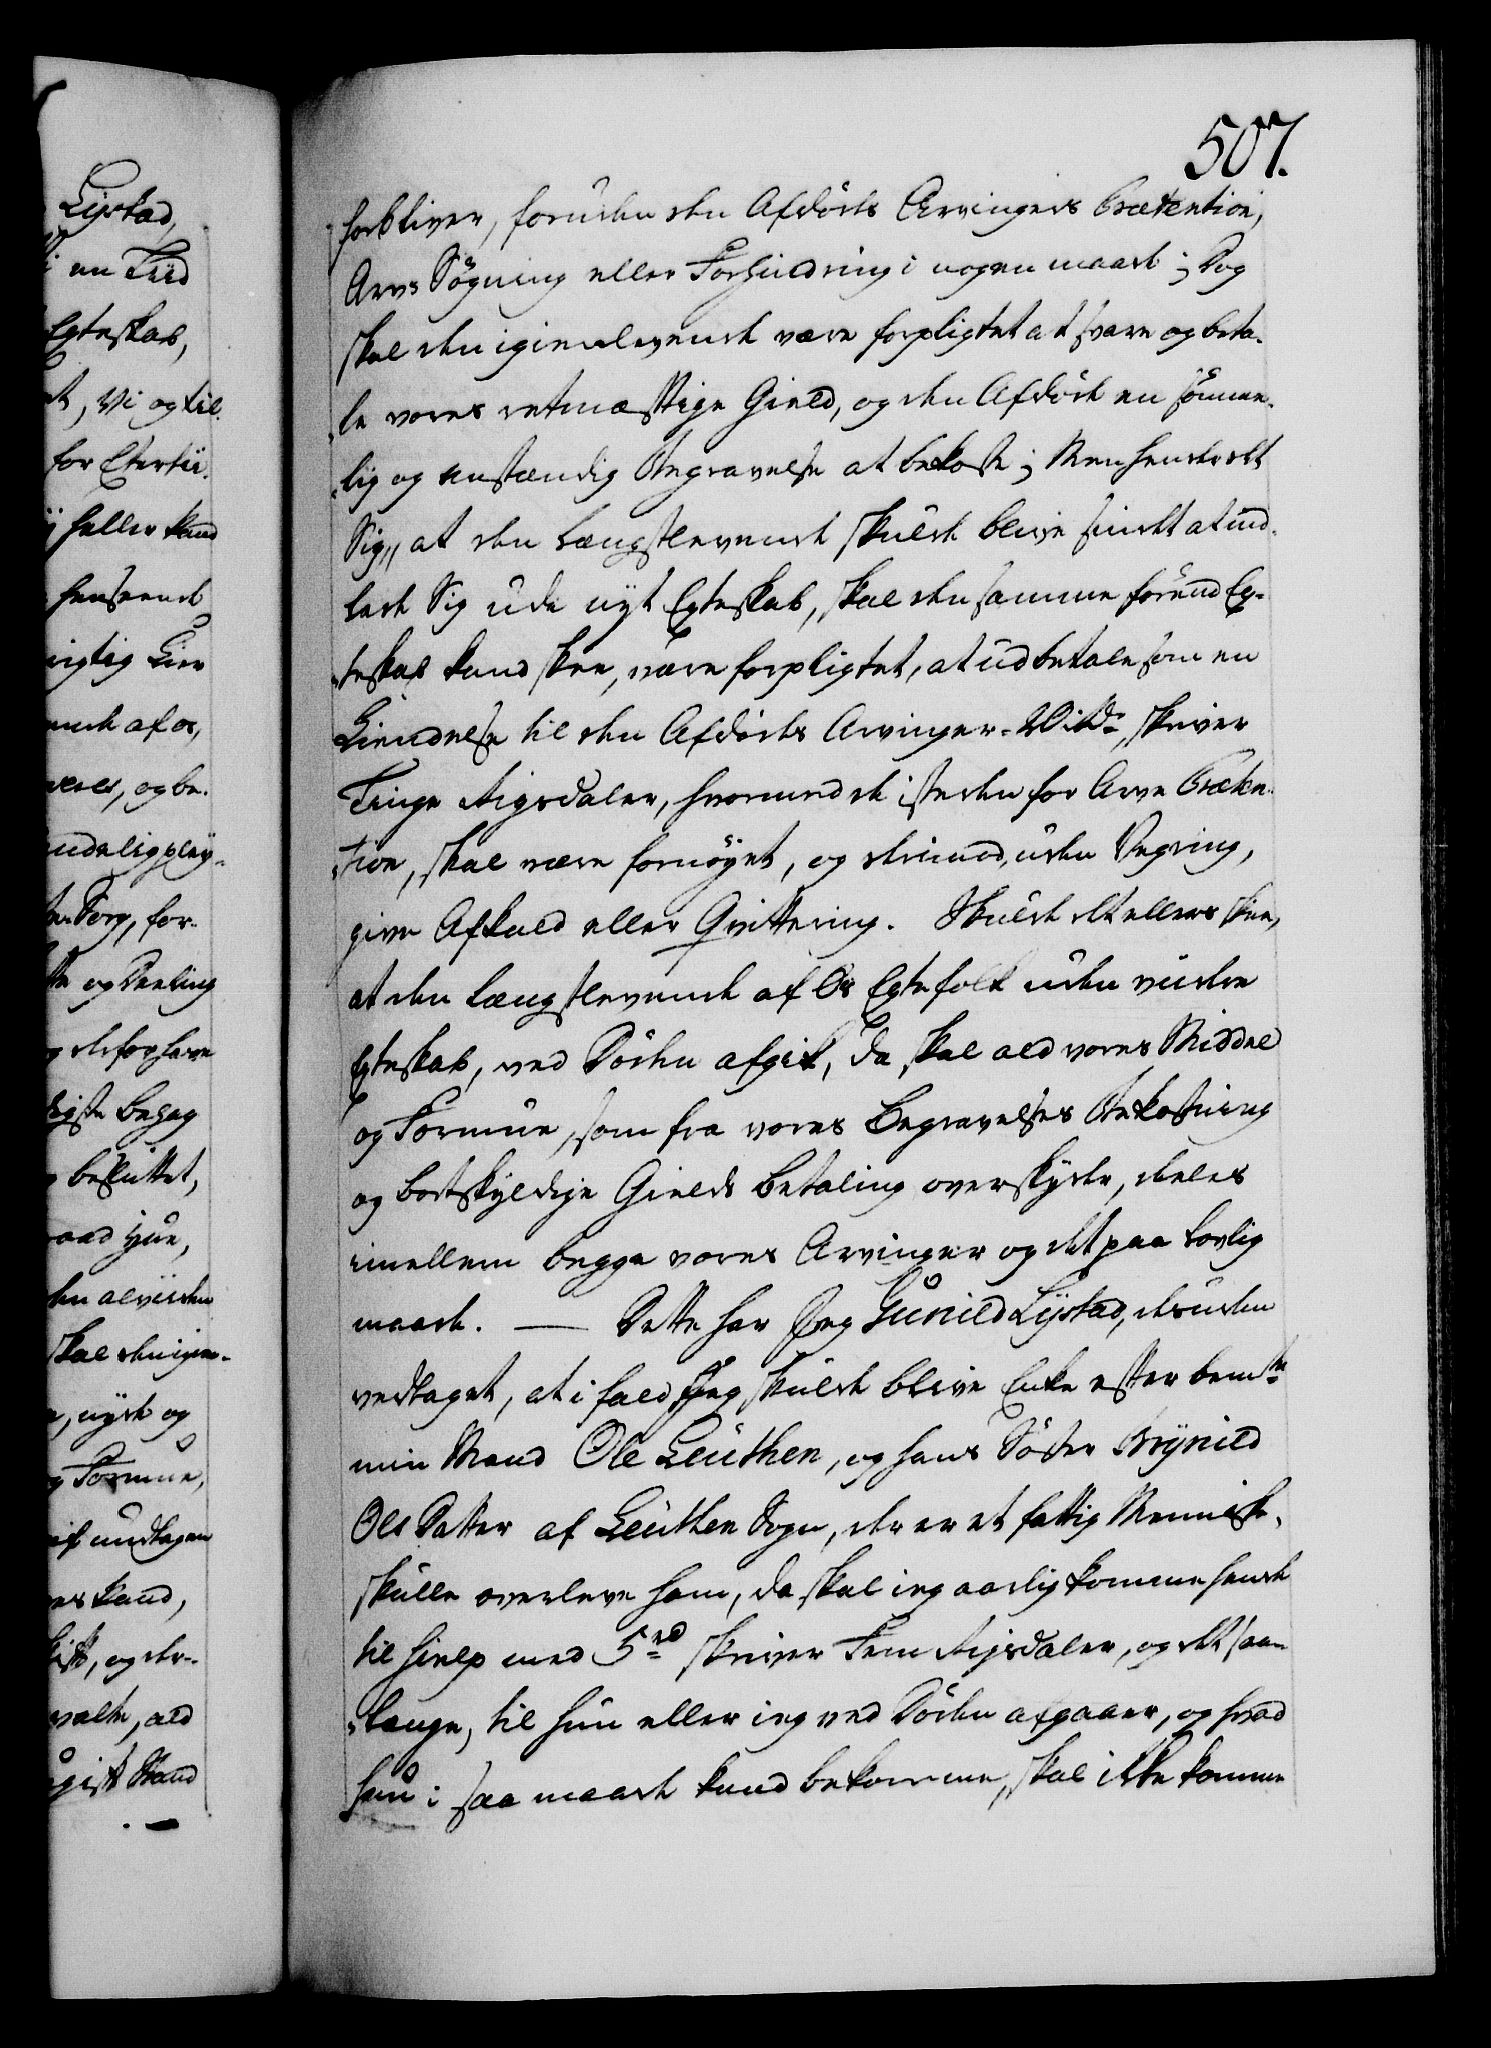 Lystad,
i en Tiid
Egteskab,
t, Vi og til¬
for Eftertii¬
heller kand
henseende
rigtig Lier
ende af os,
veres, og be¬
indelig pley¬
Sorg, for¬
og Deeling
og derfor have
ste behag
besluttet,
aad Hue,
den alviisden
skal den igien¬
nyde og
og Formue,
undtagen
es kand,
skifft, og der¬
valte, ald
gift Stand
507.
forbliver, foruden den Afdödes Arvingers Prætention,
Arvs Sögning eller Forhindring i nogen maade; Dog
skal den igienlevende være forpligtet at svare og beta¬
le vores retmæssige Gield, og den Afdöde en sömme¬
lig og anstændig Begravelse at bekoste; Men hendte det
Sig, at den Længstlevende skulde blive sindet at ind¬
lade Sig udi nyt Egteskab, skal den samme förend Eg¬
teskab kand skee, være forpligtet, at udbetale som en
Kiendelse til den Afdödes Arvinger skriver
Tiuge Rigsdaler, hvormed de isteden for Arve Præten¬
tion, skal være fornöyet, og derimod, uden Vegring,
give Afkald eller Qvittering. Skulde det ellers skee,
at den Længstlevende af Os Egtefolk uden viidre
Egteskab, ved Döden afgik, da skal ald vores Middel
og Formue, som fra vores Begravelses Bekostning
og bortskyldige Gields Betaling overskyder, deeles
imellem begge vores Arvinger og det paa lovlig
maade. — Dette har Jeg Gunild Lystad, desuden
vedtaget, at i fald Jeg skulde blive Enke efter bem.te
min Mand Ole Leuthen, og hans Söster Brynild
Ols Datter af Leuthen Sogn, der er et fattig Menniske,
skulle overleve ham, da skal ieg aarlig komme hende
til hielp med 5 rd skriver Fem Rigsdaler, og det saa
længe, til hun eller ieg ved Döden afgaaer, og hvad
hun i saa maade kand bekomme, skal ikke komme